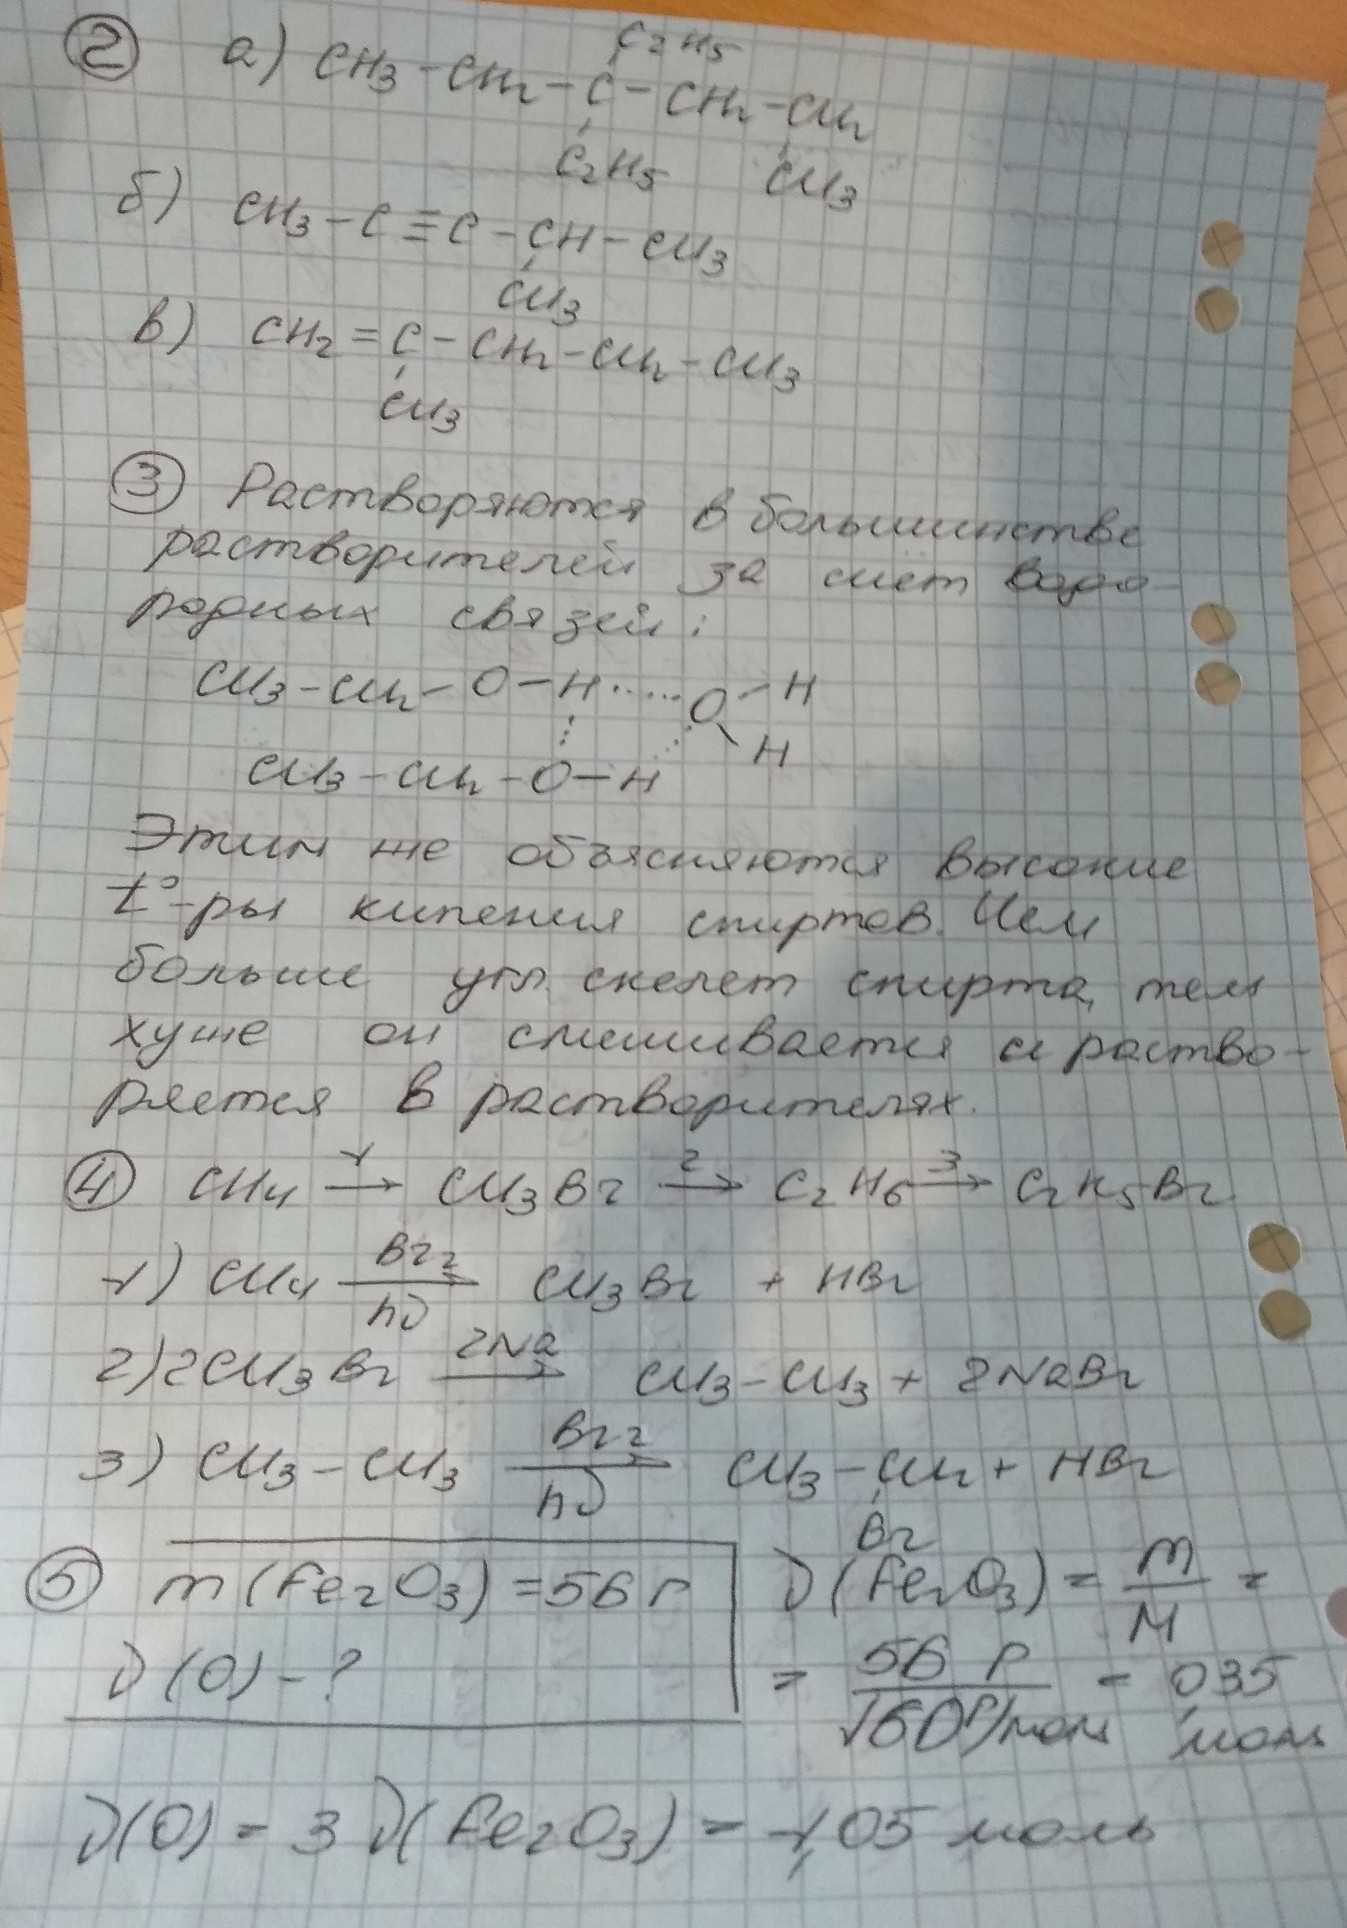 C₂H₅
② а) CH₃ - CH₂ - C - CH₂ - CH₂
C₂H₅ CH₃
б) CH₃ - C ≡ C - CH - CH₃
CH₃
в) CH₂ = C - CH₂ - CH₂ - CH₃
CH₃
③ Растворяются в большинстве
растворителей за счет водо-
родных связей:
CH₃ - CH₂ - O - H ..... O - H
H
CH₃ - CH₂ - O - H
Этим же объясняются высокие
t°-ры кипения спиртов. Чем
больше угл. скелет спирта, тем
хуже он смешивается и раство-
ряется в растворителях.
④ CH₄ →¹ CH₃Br →² C₂H₆ →³ C₂H₅Br
Br₂
1) CH₄ → CH₃Br + HBr
hν
2Na
2) 2CH₃Br → CH₃ - CH₃ + 2NaBr
Br₂
3) CH₃ - CH₃ → CH₃ - CH₂ + HBr
hν Br
⑤ m(Fe₂O₃) = 56 г ν(Fe₂O₃) = m/M =
ν(O) - ? = 56 г / 160 г/моль = 0,35
моль
ν(O) = 3 ν(Fe₂O₃) = 1,05 моль